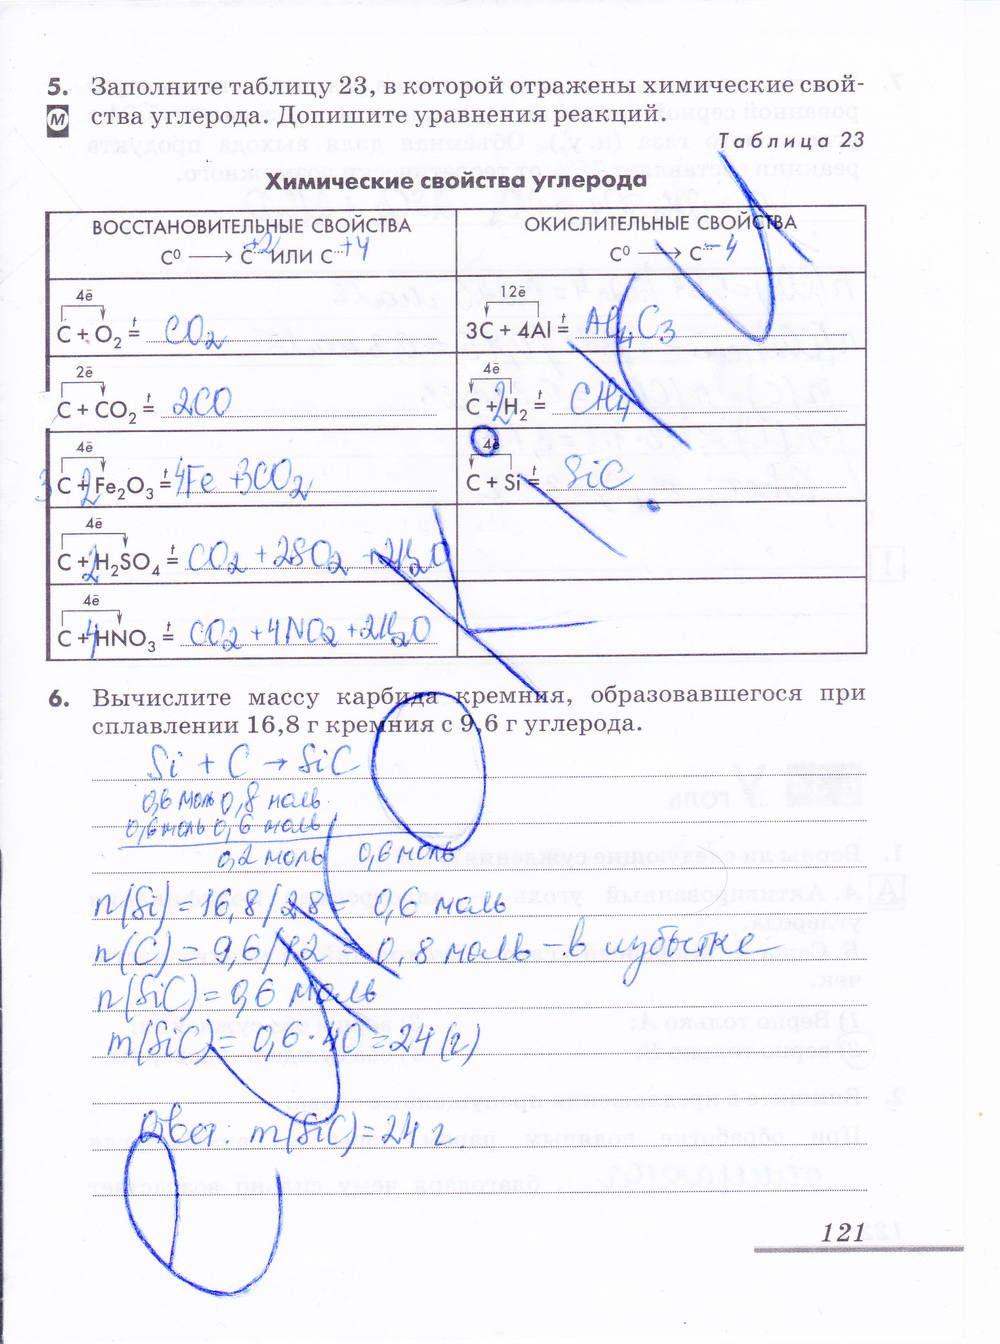 5. Заполните таблицу 23, в которой отражены химические свой-
М ства углерода. Допишите уравнения реакций.
Таблица 23
Химические свойства углерода
ВОССТАНОВИТЕЛЬНЫЕ СВОЙСТВА
C⁰ ⟶ C⁺² ИЛИ C⁺⁴
ОКИСЛИТЕЛЬНЫЕ СВОЙСТВА
C⁰ ⟶ C⁻⁴
4ē
C + O₂ =ᵗ CO₂
12ē
3C + 4Al =ᵗ Al₄C₃
2ē
C + CO₂ =ᵗ 2CO
4ē
C + 2H₂ =ᵗ CH₄
4ē
3C + 2Fe₂O₃ =ᵗ 4Fe + 3CO₂
4ē
C + Si =ᵗ SiC
4ē
C + 2H₂SO₄ =ᵗ CO₂ + 2SO₂ + 2H₂O
4ē
C + 4HNO₃ =ᵗ CO₂ + 4NO₂ + 2H₂O
6. Вычислите массу карбида кремния, образовавшегося при
сплавлении 16,8 г кремния с 9,6 г углерода.
Si + C → SiC
0,6 моль 0,8 моль
0,6 моль 0,6 моль
0,2 моль 0,6 моль
n(Si) = 16,8/28 = 0,6 моль
n(C) = 9,6/12 = 0,8 моль – в избытке
n(SiC) = 0,6 моль
m(SiC) = 0,6 · 40 = 24 (г)
Ответ: m(SiC) = 24 г
121